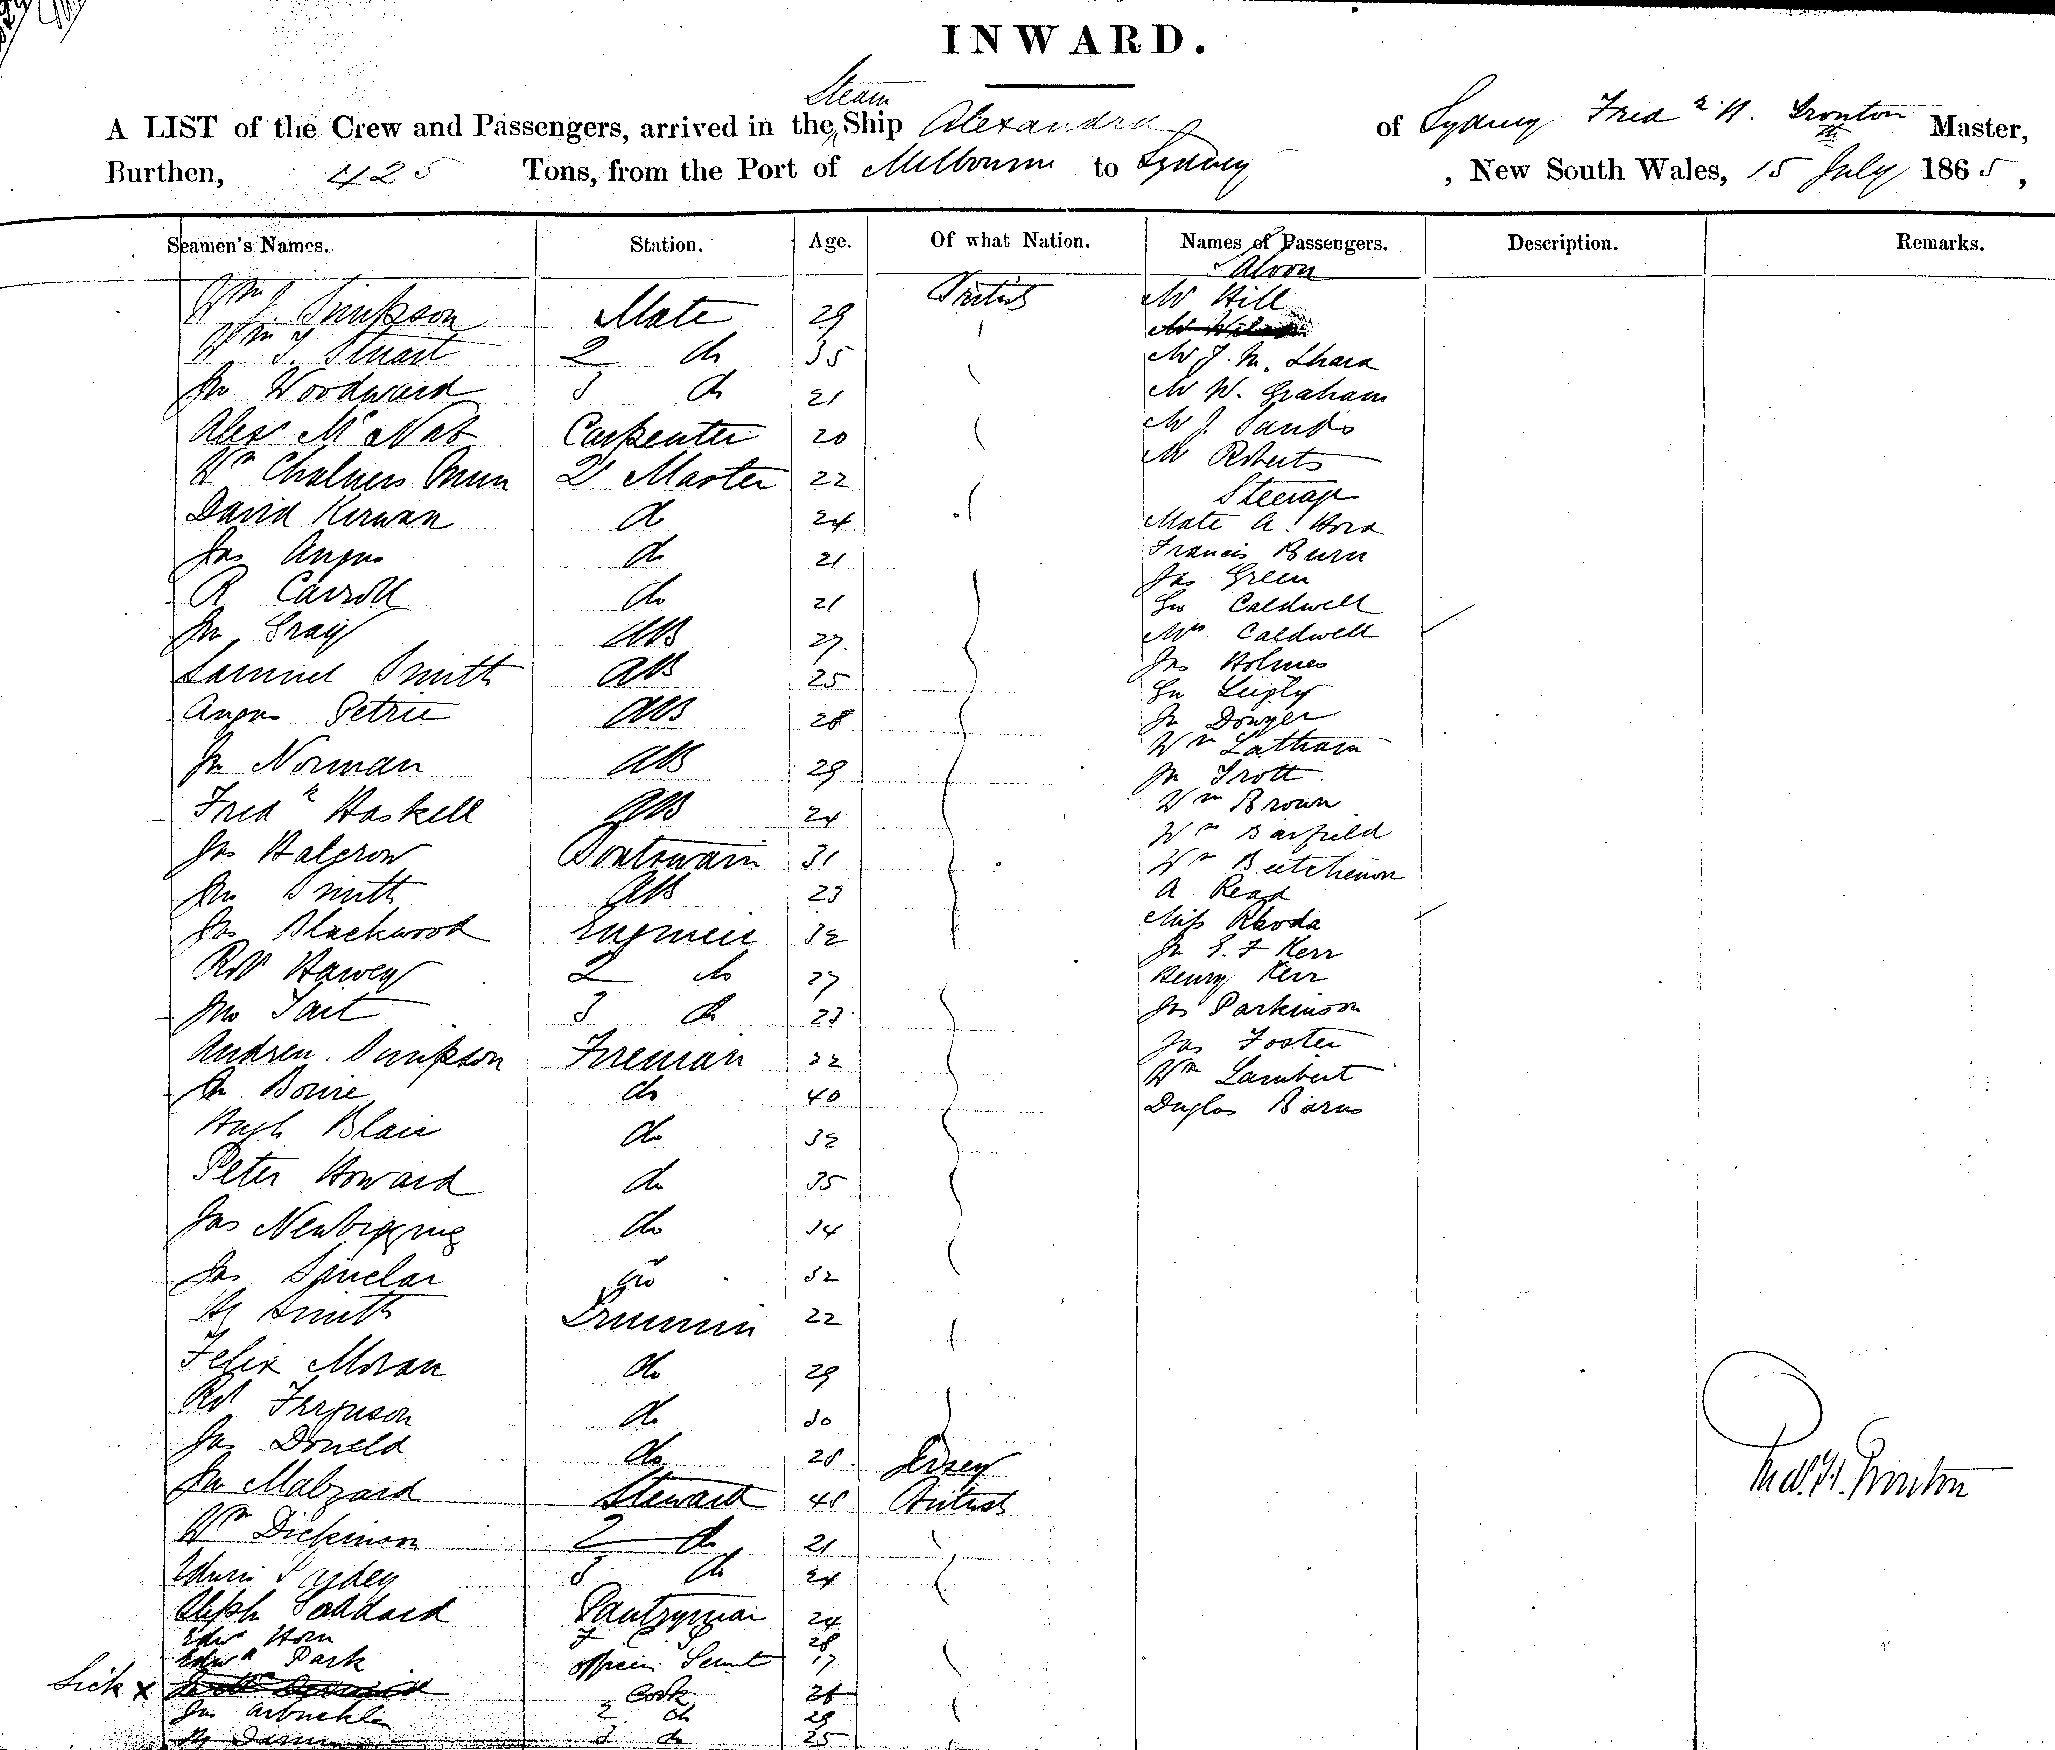 INWARD.
A LIST of the Crew and Passengers, arrived in the Steam Ship Alexandra of Sydney Fredk H. Trouton Master,
Burthen, 425 Tons, from the Port of Melbourne to Sydney, New South Wales, 15th July 1865,
Seamen's Names. Station. Age. Of what Nation. Names of Passengers. Description. Remarks.
Saloon
Wm J. Simpson Mate 29 British Mr Hill
Wm T. Stuart 2 do 35
Mr J. M.
Jn Woodward 3 do 21 Mr W. Graham
Alexr McNab Carpenter 20 Mr J. Sands
Wm Chalmers 2r Master 22 Mr Roberts
Steerage
David Kirwan do 24 Mate A.
Jas Angus do 21 Francis Burn
Jas Green
R Carroll do 21 Geo Caldwell
Jn Gray AB 27 Mrs Caldwell
Samuel Smith AB 25 Jas Holmes
Angus Petrie AB 28 Jn Dowyer
Wm Latham
Jn Norman AB 29 Jn Trott
Fredk Haskell AB 24 Wm Brown
Wm Barfield
Jas Halcrow Boatswain 31 Wm
Jn Smith AB 23 A Read
Jas Blackwood Engineer 32 Miss Rhoda
Jn E. F Kerr
Robt Harvey 2 do 27 Henry Kerr
Jno Tait 3 do 23 Jas Parkinson
Andrew Simpson Fireman 32 Jas Foster
do 40 Wm Lambert
Hugh Blair do 32 Duglas Barns
Peter Howard do 35
Jas Newbigging do 34
Jas Sinclar do 32
Hy Smith Trimmer 22
Felix Moran do 29
Rot Ferguson do 30
Jas Donald do 28
Jn Malzard Steward 48 Jersey
Fredk H. Trouton
Wm Dickinson 2 do 21 British
Edwin 3 do 24
Alfph Goddard Pantryman 24
Edwd Horn 28
Edwd Park Servnt 17
Sick x Cook 26
Jn Arbuckle 2 do 29
3 do 25